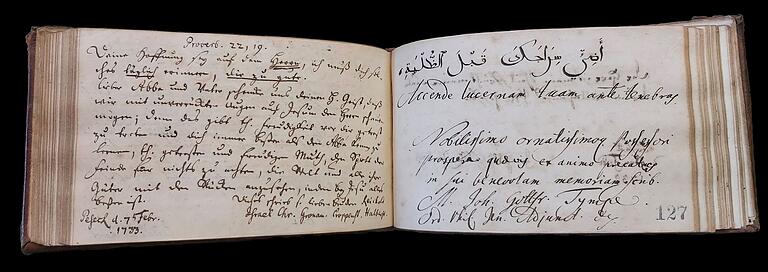 Proverb. 22, 19.
Deine Hoffnung sey auf den Herrn, ich muß dich sol-
ches täglich erinnern, dir zu gute.
Lieber Abba und Vater schencke uns deinen H. Geist, daß
wir mit unverrückten Augen auf Jesum den Herrn sehen
mögen; denn das gibt freudigkeit vor dir getrost
zu treten und dich immer besser als den Abba kennen zu
lernen, getrosten und freudigen Muth, den Spott der
Feinde für nichts zu achten, die Welt und alle ihre
Güter mit dem Rücken anzusehen, Jesus alles
besser ist.
Dieses schrieb s. lieben Bruder
Israel Chr. Gronau.
d. 7 Febr.
1733.
سِرَاجَكَ قَبْلَ الظُّلْمَة
Accende lucernam tuam ante tenebras
Nobilissimo ornatissimoq Possessori
prospera quævis et animo
in sui benevolam memoriam scrib.
M. Joh. Gottfr. Tympe
Ord. Phil. Adjunct.
127